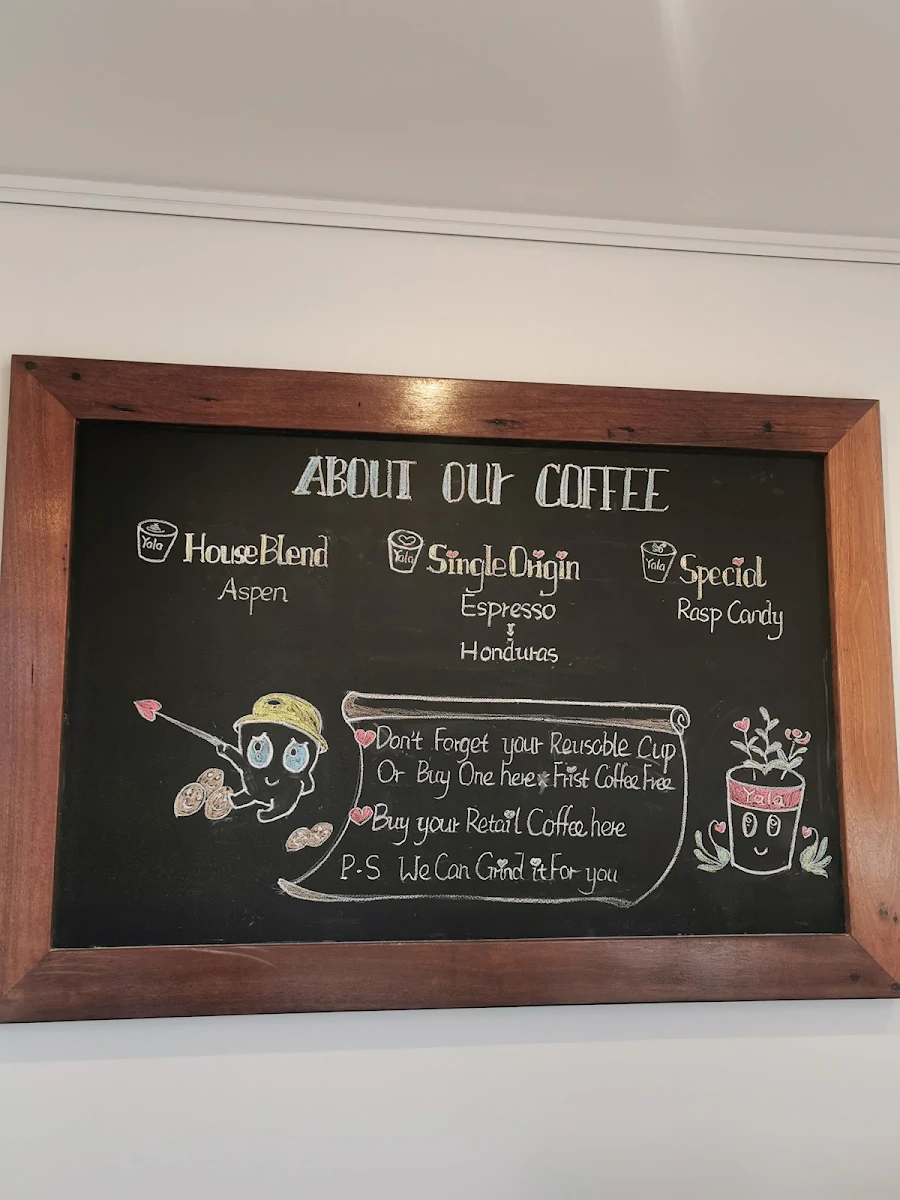 ABOUT OUR COFFEE
Yala
House Blend
Aspen
Yala
Single Origin
Espresso
Honduras
Yala
Special
Rasp Candy
Don't Forget your Reusable Cup
Or Buy One here Frist Coffee Free
Buy your Retail Coffee here
P.S We Can Grind it For you
Yala